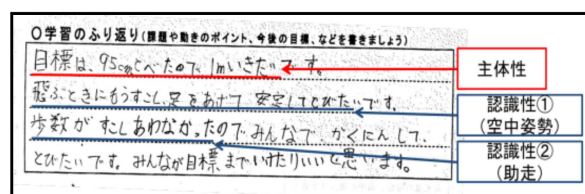 ○学習のふり返り(課題や動きのポイント、今後の目標、などを書きましょう)
目標は、95cmとべたので、1mいきたいです。
飛ぶときにもうすこし足をあげて安定してとびたいです。
歩数がすこしあわなかったのでみんなで、かくにんして、
とびたいです。みんなが目標までいけたらいいと思います。
主体性
認識性①
(空中姿勢)
認識性②
(助走)